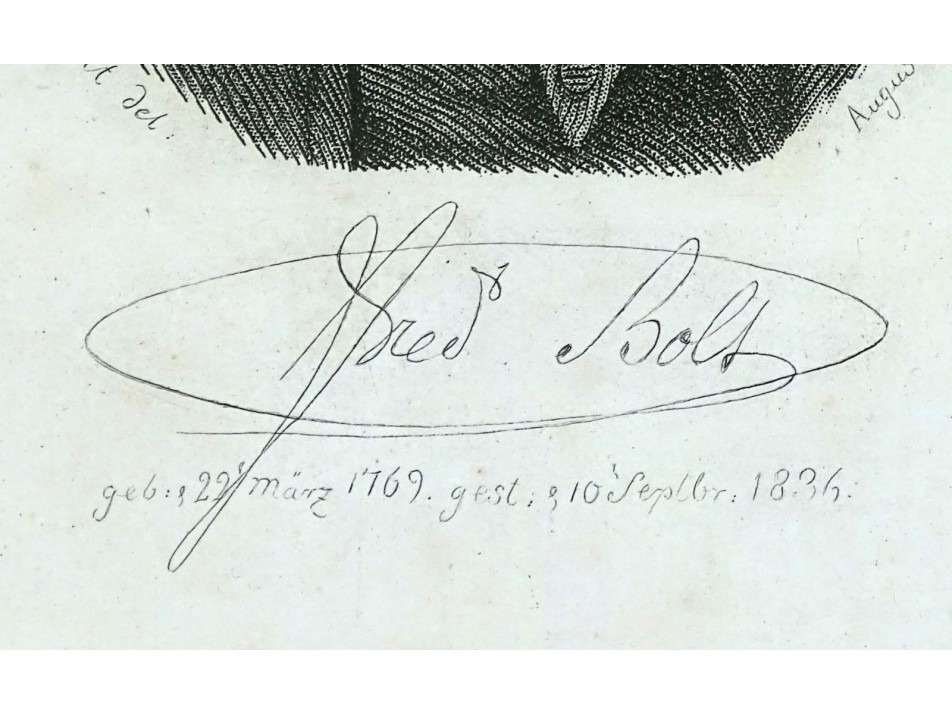 t del:
Augus
Fred^r Bolt
geb: d 22' März 1769. gest: d 10' Septbr: 1836.